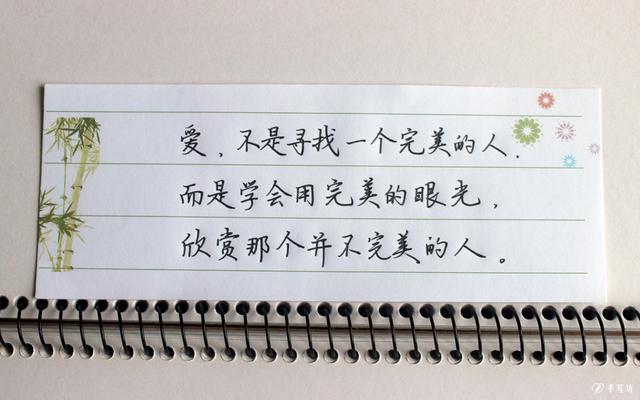 爱,不是寻找一个完美的人,
而是学会用完美的眼光,
欣赏那个并不完美的人。
手写坊